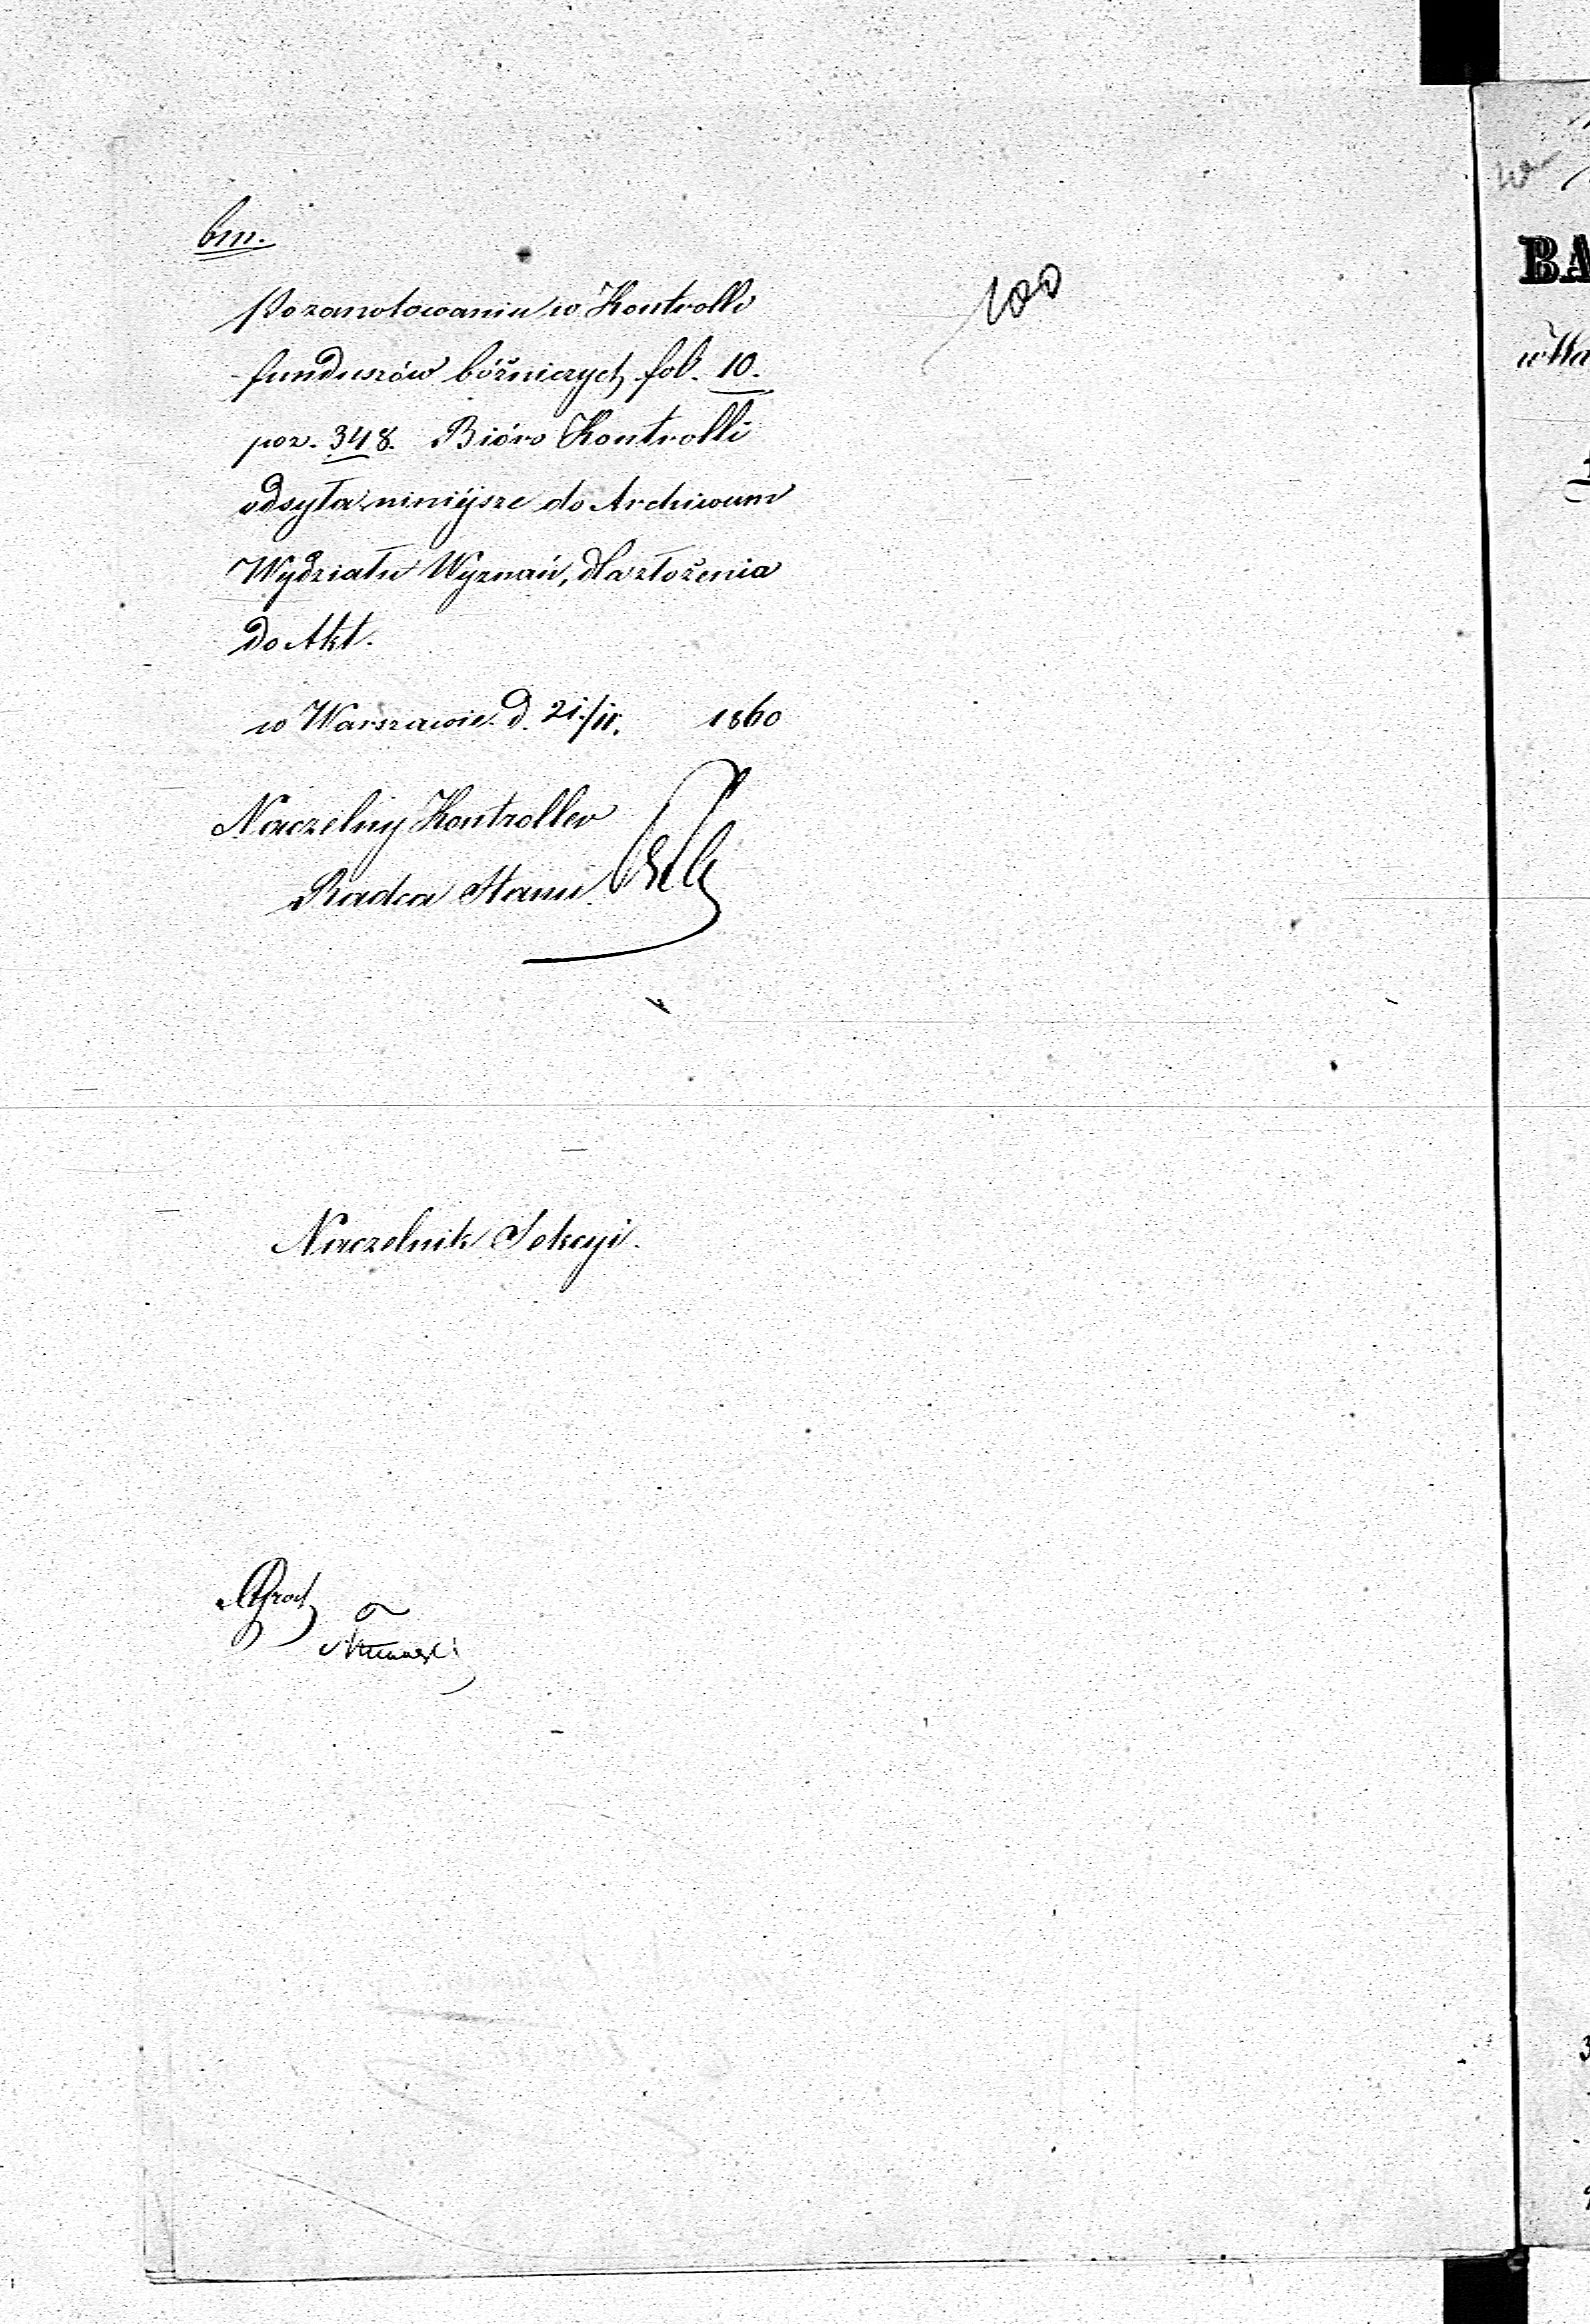 bm.
100
Po zanotowaniu w Kontrolli
funduszów bóżniczych fol. 10.
poz. 348. Bióro Kontrolli
odsyła niniejsze do Archiwum
Wydziału Wyznań, dla złożenia
do Akt.
w Warszawie d. 21/11. 1860
Naczelny Kontroller
Radca Stanu
Naczelnik Sekcyi.
w
BA